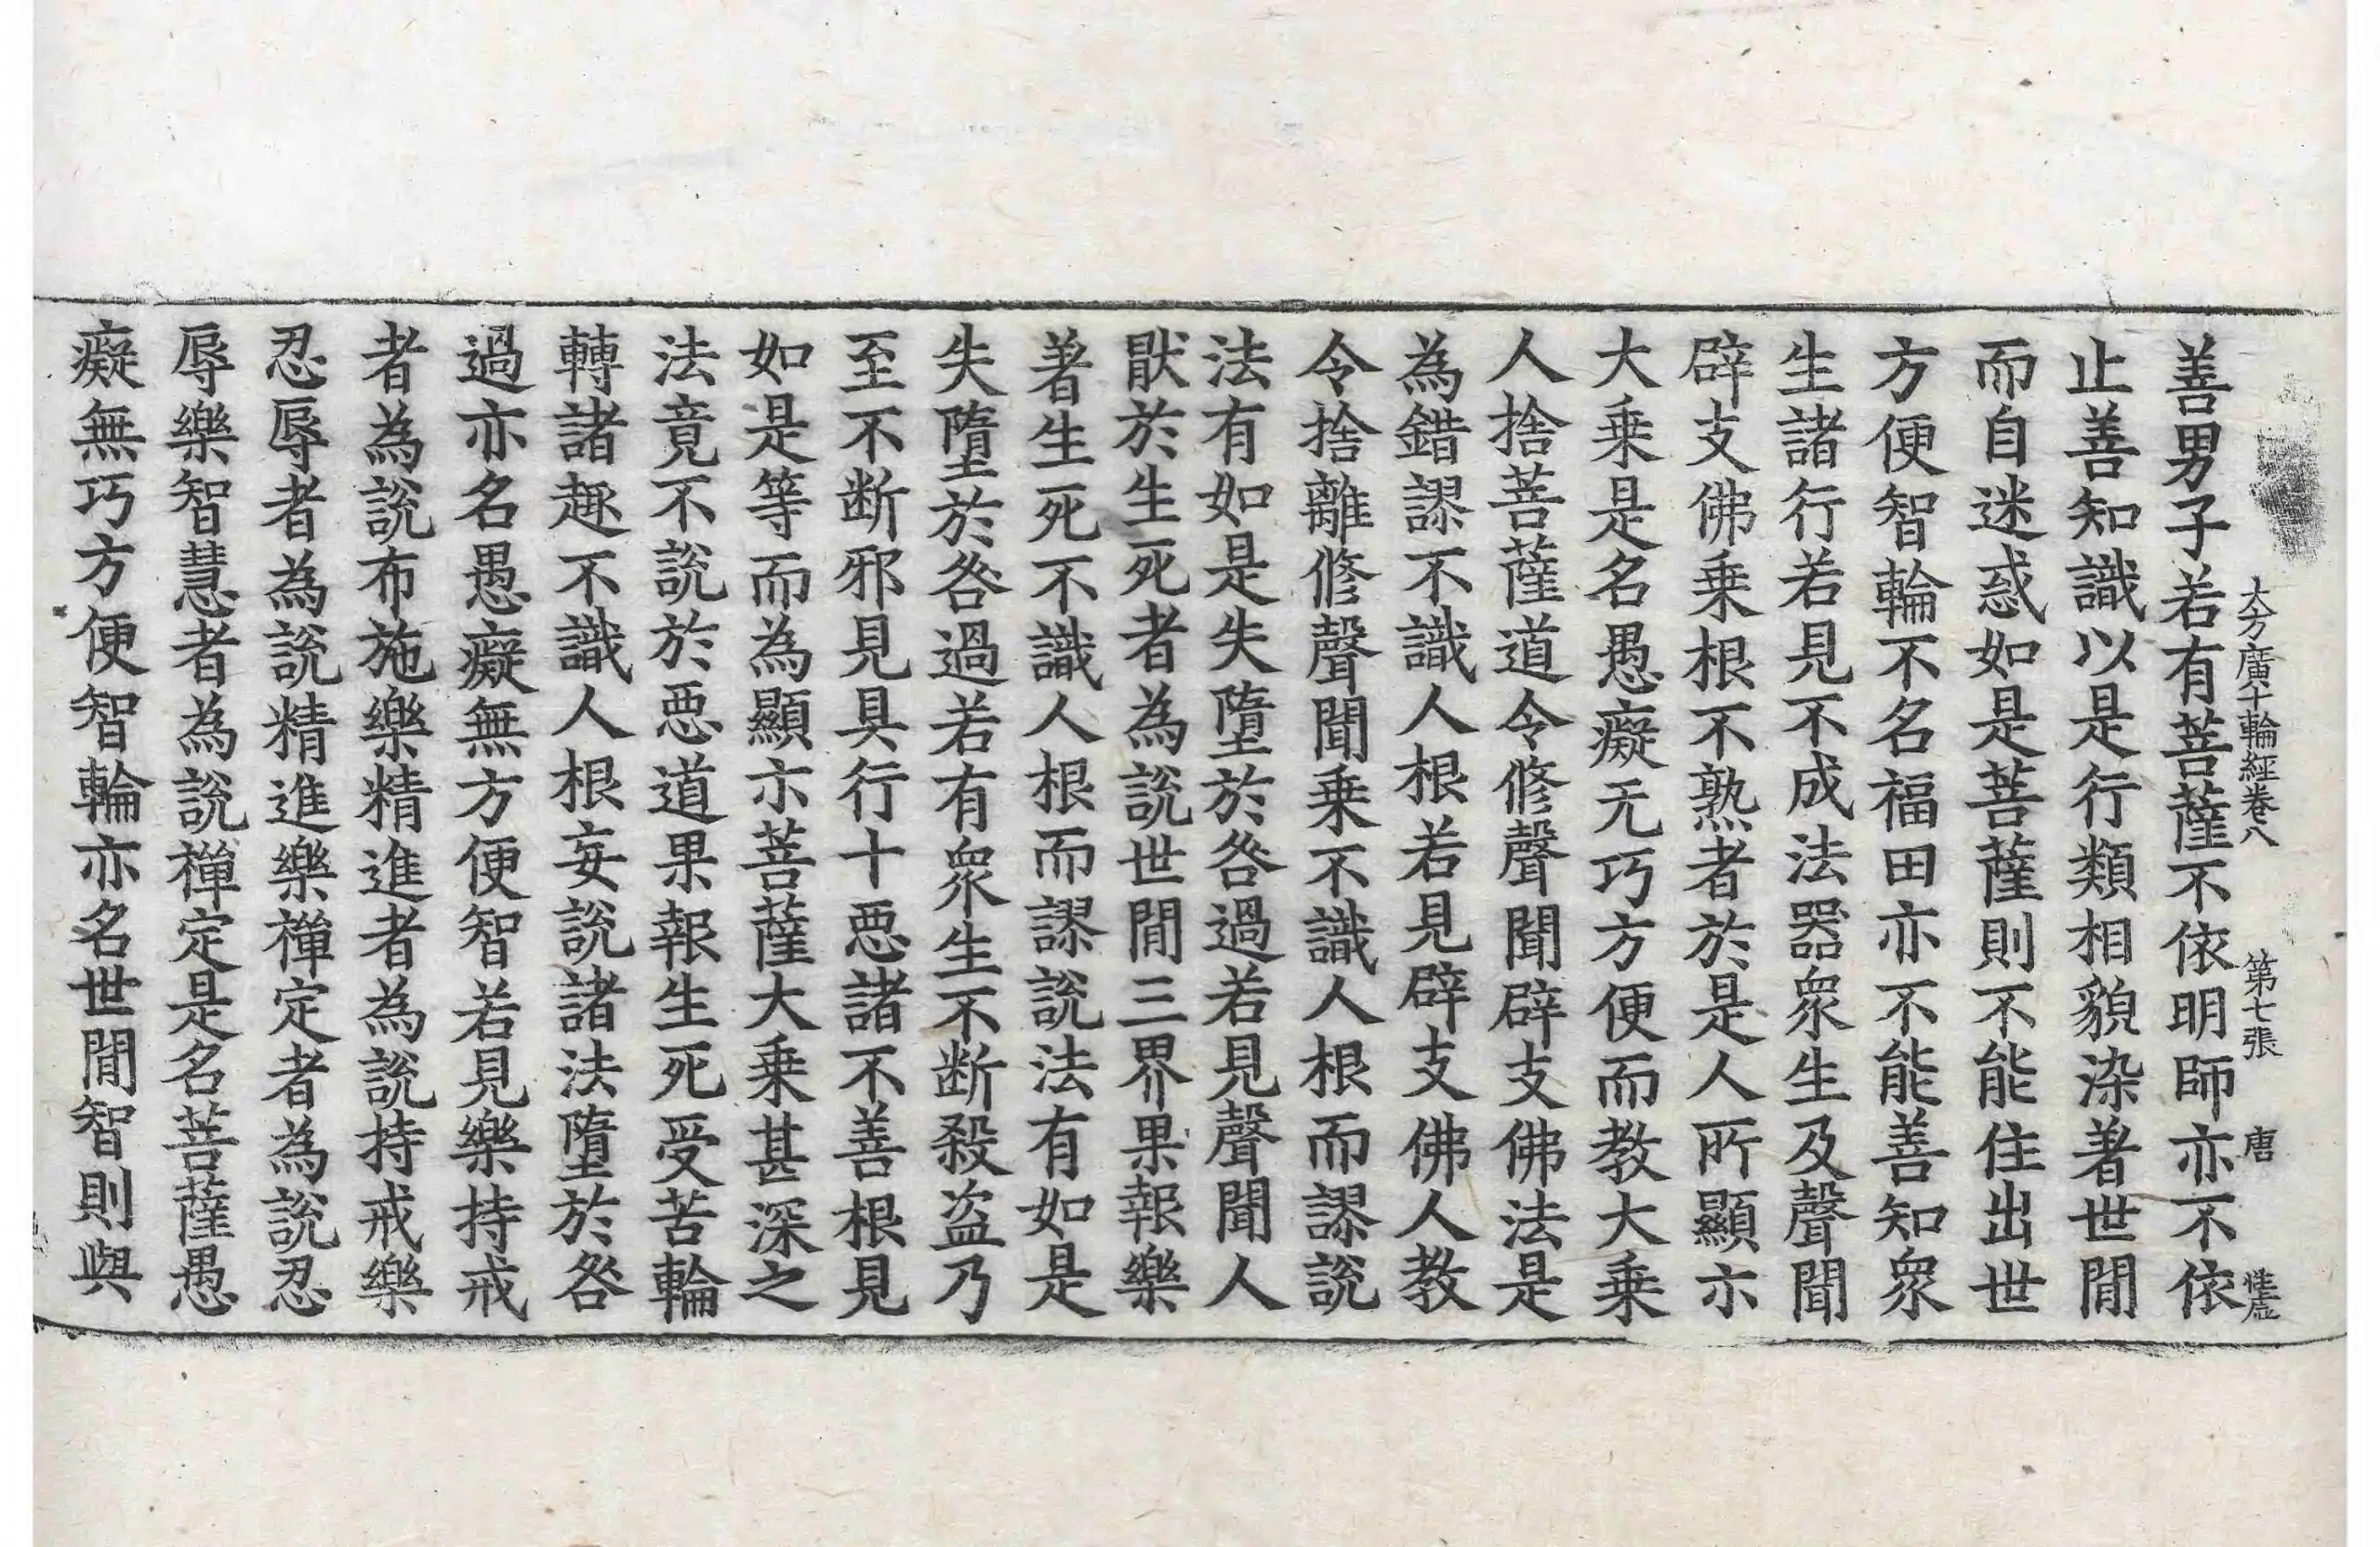 大方廣十輪經卷八　第七張　唐
善男子若有菩薩不依明師亦不依
止善知識以是行類相貌染著世間
而自迷惑如是菩薩則不能住出世
方便智輪不名福田亦不能善知衆
生諸行若見不成法器衆生及聲聞
辟支佛乗根不熟者於是人所顯示
大乗是名愚癡无巧方便而教大乗
人捨菩薩道令修聲聞辟支佛法是
為錯謬不識人根若見辟支佛人教
令捨離修聲聞乗不識人根而謬說
法有如是失墮於咎過若見聲聞人
猒於生死者為說世間三界果報樂
著生死不識人根而謬說法有如是
失墮於咎過若有衆生不断殺盗乃
至不断邪見具行十惡諸不善根見
如是等而為顯示菩薩大乗甚深之
法竟不說於惡道果報生死受苦輪
轉諸趣不識人根妄說諸法墮於咎
過亦名愚癡無方便智若見樂持戒
者為說布施樂精進者為說持戒樂
忍辱者為說精進樂禪定者為說忍
辱樂智慧者為說禪定是名菩薩愚
癡無巧方便智輪亦名世間智則與